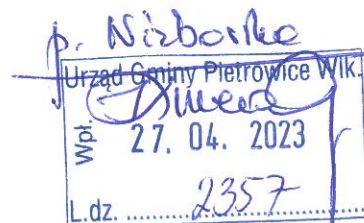 p. Nizborska
Urząd Gminy Pietrowice Wlk.
Wpł. 27. 04. 2023
L.dz. 2357